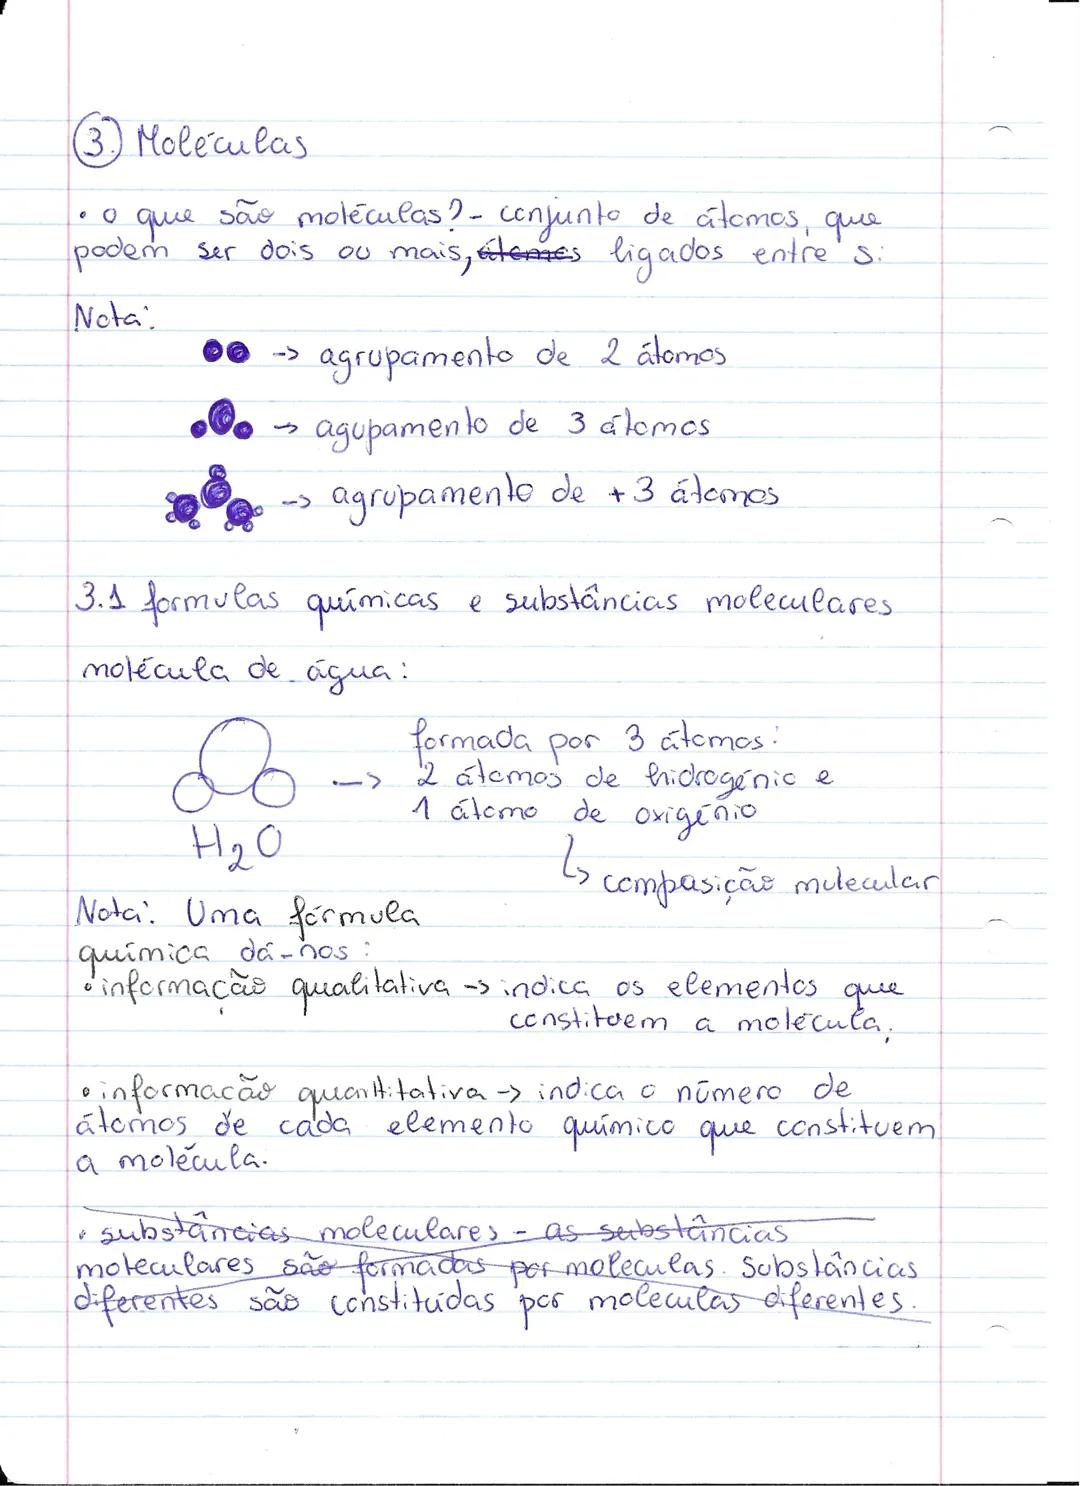 3. Moléculas
• o que são moléculas? - conjunto de átomos, que
podem ser dois ou mais, átomos ligados entre si
Nota:
-> agrupamento de 2 átomos
-> agupamento de 3 átomos
-> agrupamento de +3 átomos
3.1 formulas químicas e substâncias moleculares
molécula de água:
formada por 3 átomos:
-> 2 átomos de hidrogénio e
1 átomo de oxigénio
H2O
↳ composição molecular
Nota: Uma fórmula
química dá-nos:
• informação qualitativa -> indica os elementos que
constituem a molécula.
• informacão quantitativa -> indica o número de
átomos de cada elemento químico que constituem
a molécula.
• substâncias moleculares - as substâncias
moleculares são formadas por moleculas. Substâncias
diferentes são constituídas por moleculas diferentes.